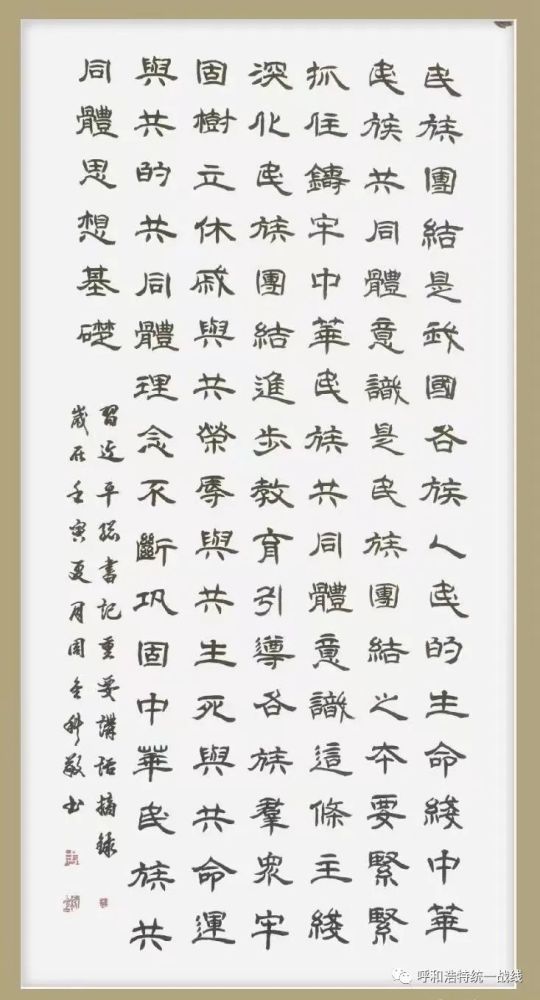 民族團結是我國各族人民的生命綫中華
民族共同體意識是民族團結之本要緊緊
抓住鑄牢中華民族共同體意識這條主綫
深化民族團結進步教育引導各族羣衆牢
固樹立休戚與共榮辱與共生死與共命運
與共的共同體理念不斷巩固中華民族共
同體思想基礎
習近平總書記重要講話摘録
歲在壬寅夏月周科敬书
呼和浩特统一战线